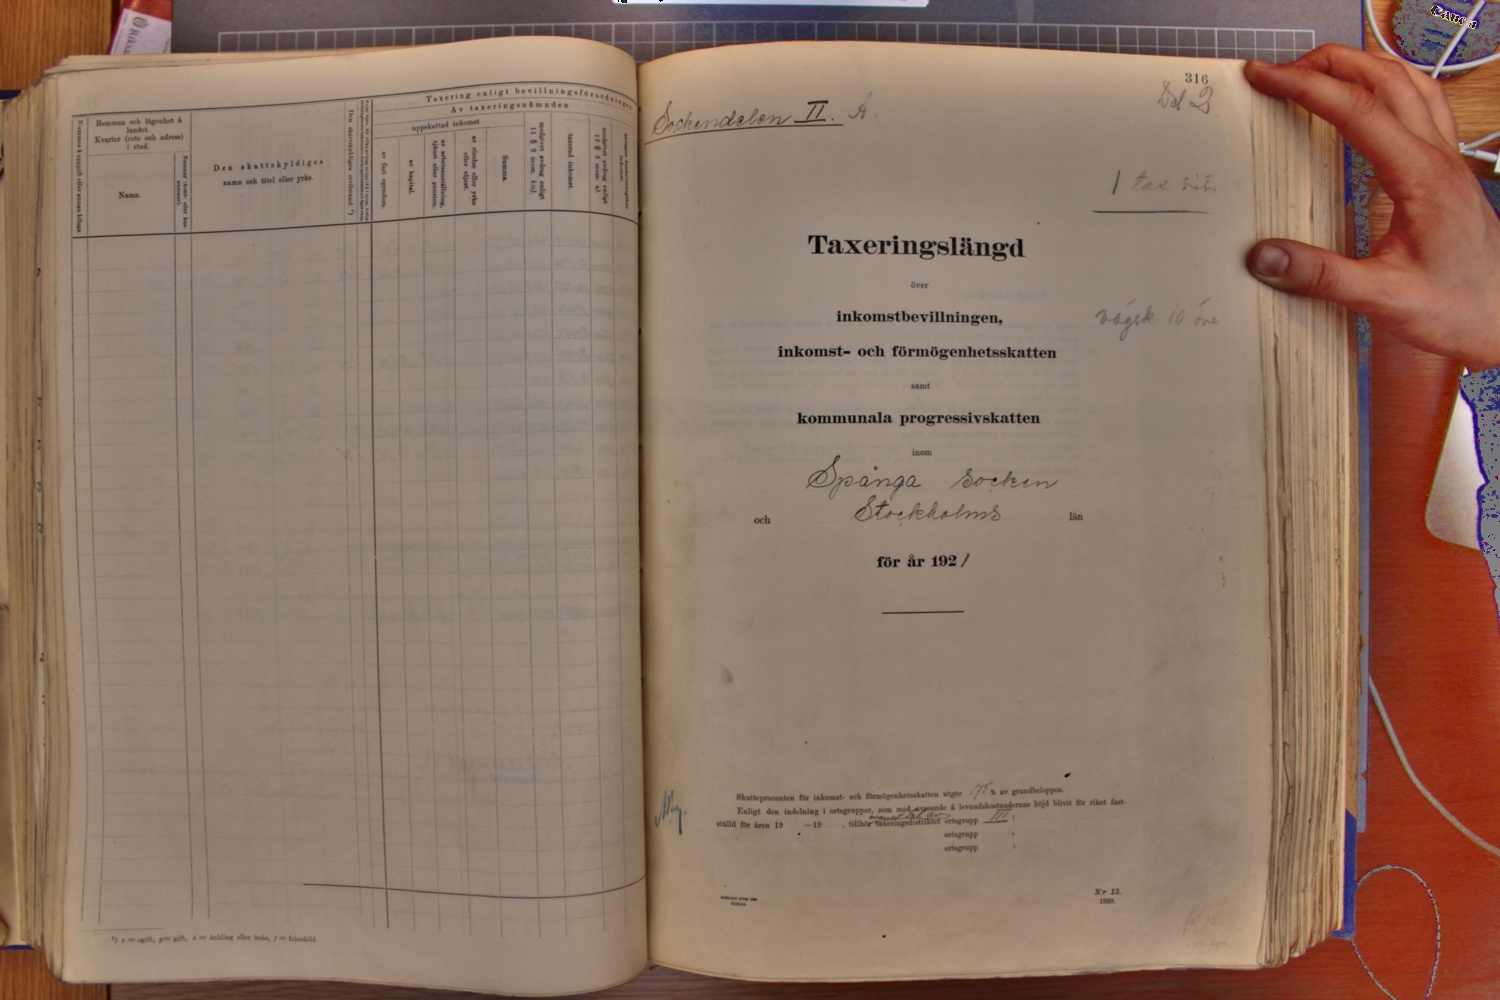 Taxering enligt bevillningsförordningen
Av taxeringsnämnden
Hemman och lägenhet å
landet.
Kvarter (rote och adress)
i stad.
Namn.
Den skattskyldiges
namn och titel eller yrke.
Den skattskyldiges civilstånd. ¹)
uppskattad inkomst
av fast egendom.
av kapital.
av arbetsanställning,
tjänst eller pension.
av rörelse eller yrke
eller eljest.
Summa.
medgivet avdrag enligt
taxerad inkomst.
medgivet avdrag enligt
¹) o = ogift, g = gift, ä = änkling eller änka, f = frånskild.
316
Del 2
Sockendelen II. A.
1 tax
Taxeringslängd
över
inkomstbevillningen,
vägsk. 10 öre
inkomst- och förmögenhetsskatten
samt
kommunala progressivskatten
inom
Spånga socken
och Stockholms län
för år 1921
Skatteprocenten för inkomst- och förmögenhetsskatten utgör 175 % av grundbeloppen.
Enligt den indelning i ortsgrupper, som med avseende å levnadskostnadernas höjd blivit för riket fast-
ställd för åren 19 —19 , tillhör taxeringsdistriktet ortsgrupp III;
ortsgrupp ;
ortsgrupp .
N:r 13.
1920.